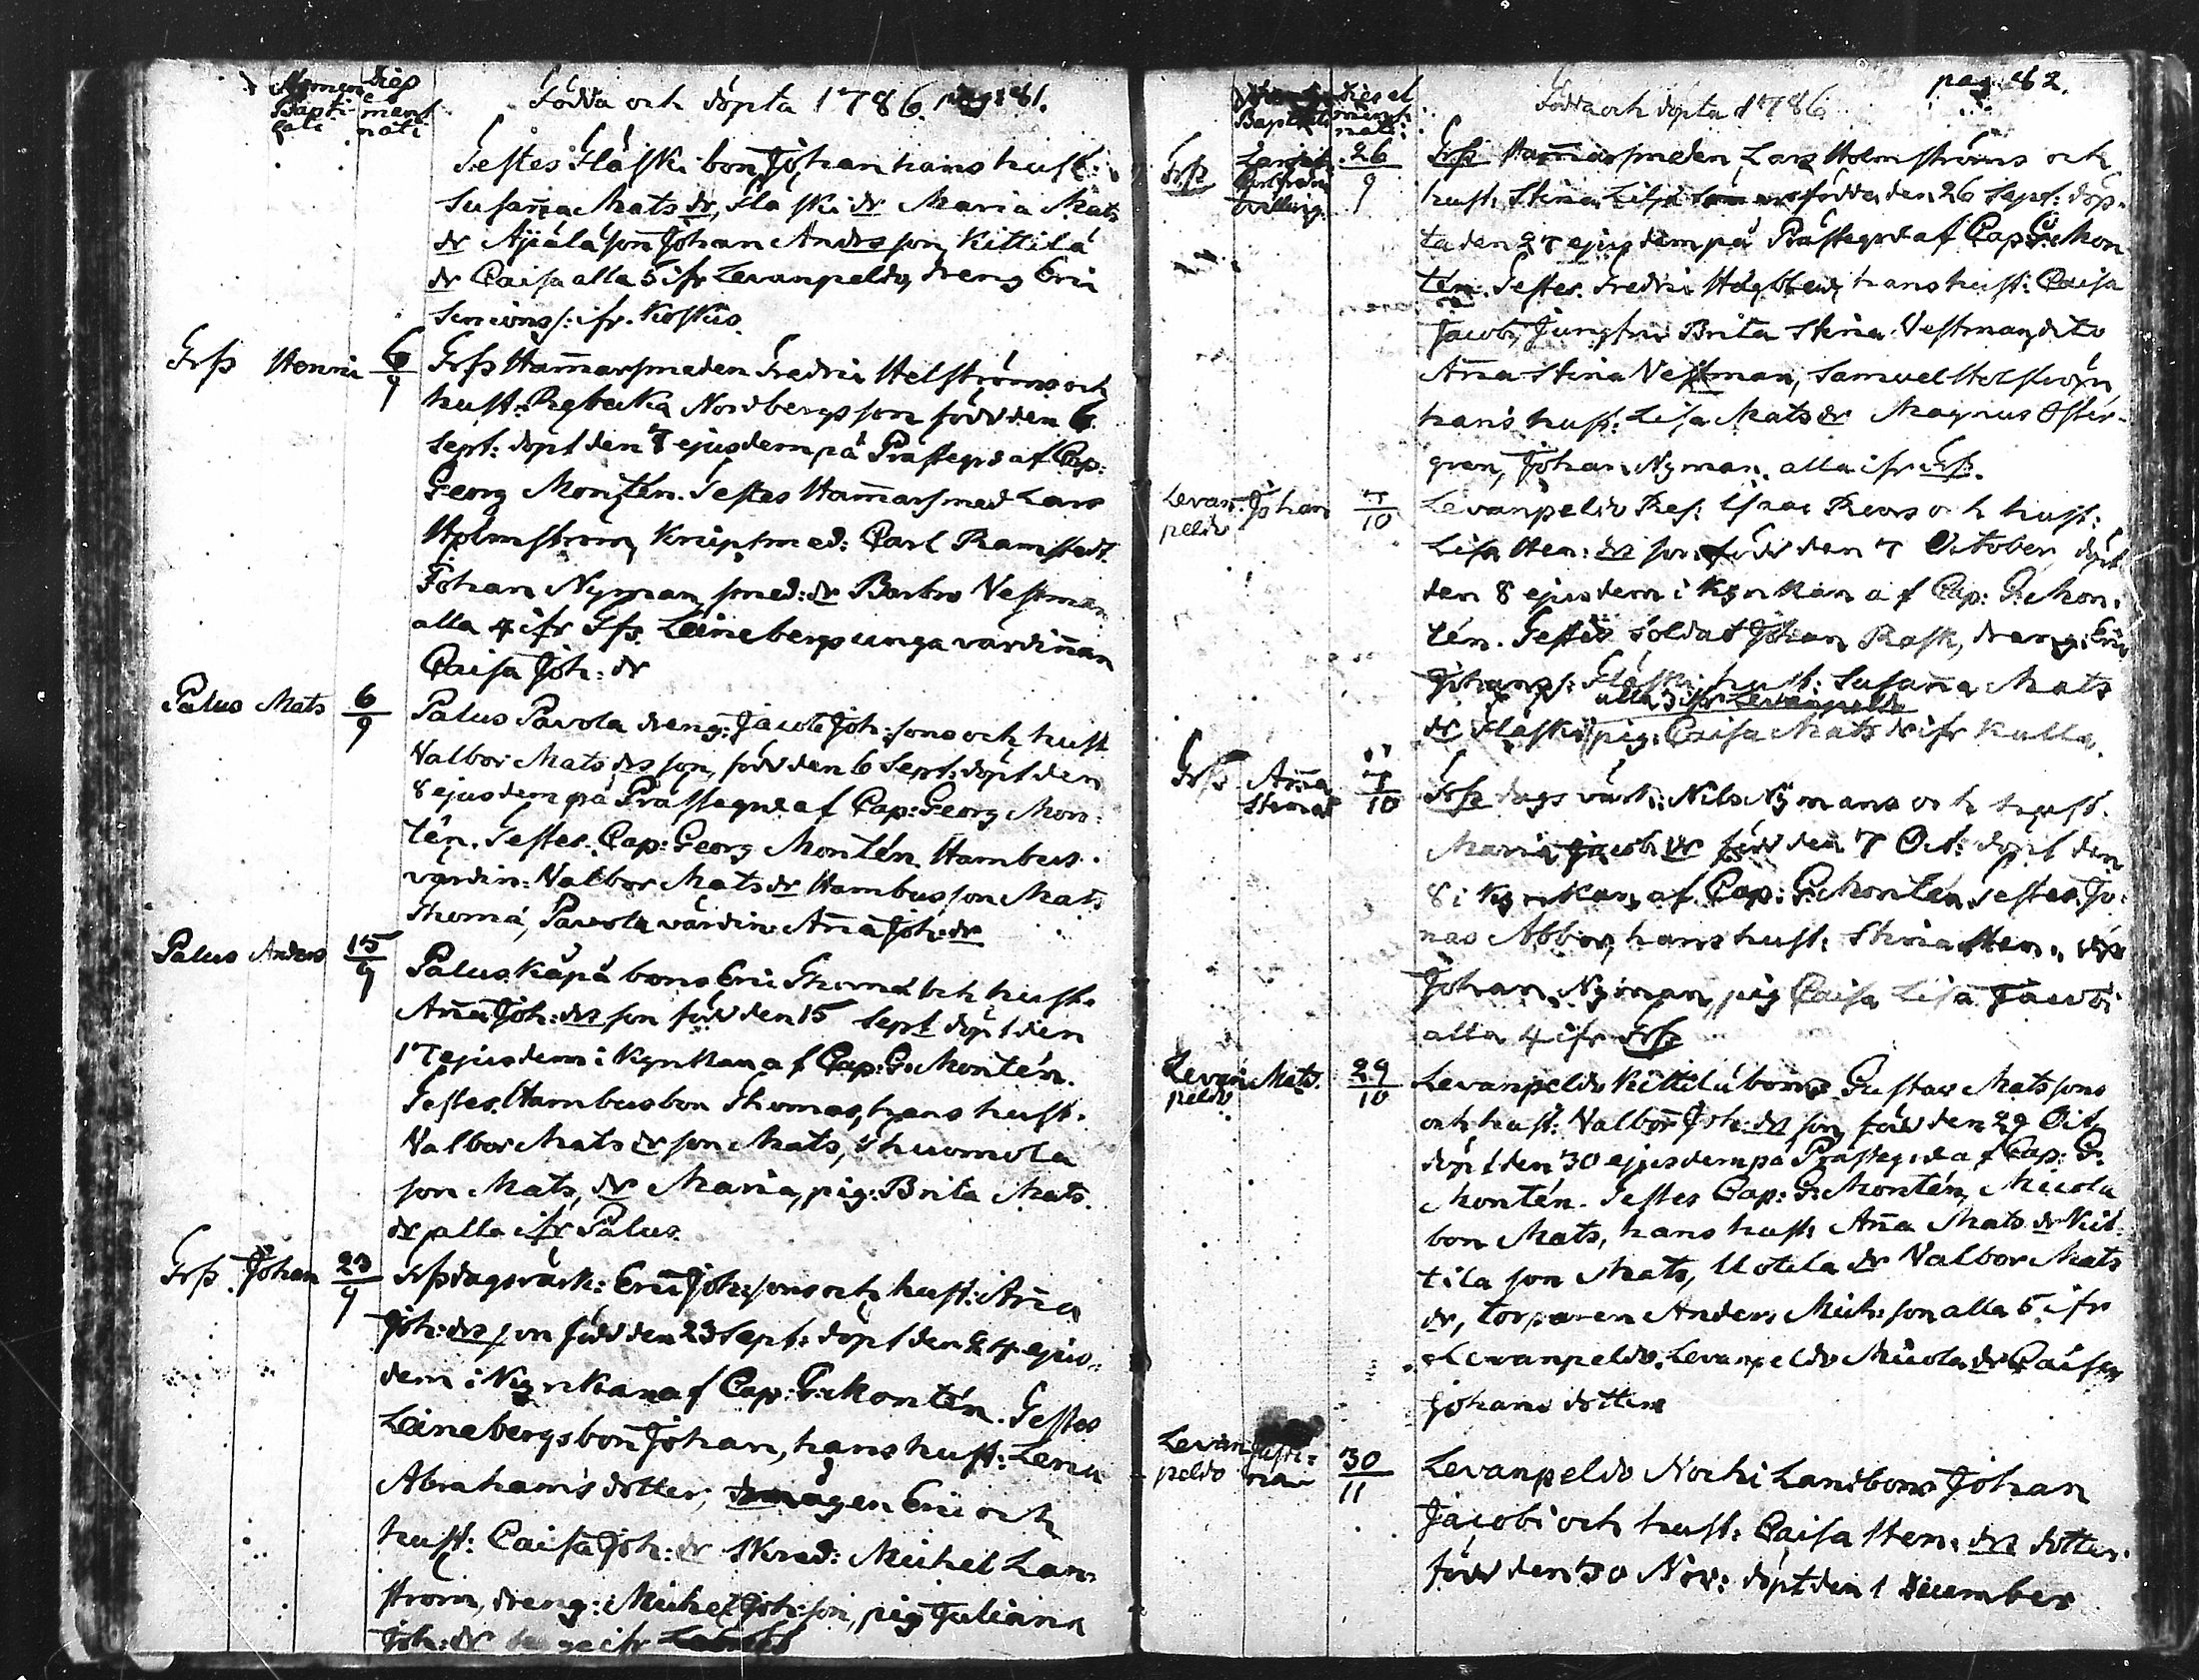 Nomen Dies
Bapti- et mens
zati nati
Födda och döpta 1786. pag: 81.
Testes Fläski bon Johan hans hust:
Susanna Mats dr, Fläski dr Maria Mats
dr Äjälä son Johan Andersson, Kittilä
dr Caisa alla 5 ifr Levanpeldo, dreng Eric
Simons s: ifr. Koskus.
Grfß Henric 6/9 Grfß Hammarsmeden Fredric Helströms och
hust: Rebecka Nordbergs son född den 6
Sept: döpt den 7 ejusdem på Prästegrd af Cap:
Georg Montén. Testes Hammarsmed Lars
Holmström, Knipsmed: Carl Ramstedt
Johan Nyman, smed: dr Barbro Vestman
alla 4 ifr Gfß. Leinebergs unga värdinnan
Caisa Joh: dr
Palus Mats 6/9 Palus Pavola dreng: Jacob Joh: sons och hust
Valbor Mats drs son, född den 6 Sept: döpt den
8 ejusdem på Prästegrd af Cap: Georg Mon-
tén. Testes. Cap: Georg Montén, Hambus
värdin: Valbor Mats dr Hambus son Mats
Thomä, Pavola värdin: Anna Joh: dr
Palus Anders 15/9 Palus Käpä bons Eric Thomä och hust:
Anna Joh: drs son född den 15 Sept döpt den
17 ejusdem i Kyrkan af Cap: G: Montén.
Testes. Hambus bon Thomas, hans hust:
Valbor Mats dr son Mats, Thuomola
son Mats, dr Maria, pig: Brita Mats
dr alla ifr Palus.
Grfß. Johan 23/9 Grfß dagsvärk: Eric Joh: sons och hust: Anna
Joh: drs son född den 23 Sept: döpt den 24 ejus-
dem i Kyrkan af Cap: G: Montén. Testes
Leinebergs bon Johan, hans hust: Lena
Abrahams dotter, mågen Eric och
hust: Caisa Joh: dr Skred: Michel Lan-
ström, dreng: Michel Joh: son, pig Juliana
Joh: dr ifr
pag: 82.
Dies et
Bapti mens
nati
Födda och döpta 1786
Grfß Lars 26/9 Grfß Hammarsmeden Lars Holmströms och
tvilling. hust: Stina Lilja födda den 26 Sept: döp-
ta den 27 ejusdem på Prästegrd af Cap: G: Mon-
tén. Testes. Fredric Högbben, hans hust: Caisa
Jacobi, Jungfru Brita Stina Vestman, dito
Anna Stina Vestman, Samuel Holström
hans hust: Lisa Mats dr Magnus Öster-
gren, Johan Nyman, alla ifr Grfß.
Levan- Johan 7/10 Levanpeldo Res: Isaac Revors och hust:
peldo Lisa Hen: drs son född den 7 October, döpt
den 8 ejusdem i Kyrkan af Cap: G: Mon-
tén. Testes Soldat Johan Rask, dreng: Eric
Johans s: Fläski hust: Susanna Mats
alla 3 ifr Levanpeldo
dr Fläski, pig: Caisa Mats dr ifr Kulla.
Grfß Anna 7/10 Grfß dags värk: Nils Nymans och hust.
Stina Maria Jacobi dr född den 7 Oct: döpt den
8 i Kyrkan af Cap: G: Montén. Testes. Jo-
nas Abbor, hans hust: Stina Hen: dr
Johan Nyman, pig Caisa Lisa Jacobi
alla 4 ifr Grfß
Levan- Mats. 29/10 Levanpeldo Kittilä bons Gustav Mats sons
peldo och hust: Valbor Joh: drs son, född den 29 Oct
döpt den 30 ejusdem på Prästegrd af Cap: G:
Montén. Testes Cap: G: Montén, Micola
bon Mats, hans hust: Anna Mats dr Kit-
tilä son Mats, Uotila dr Valbor Mats
dr, torparen Anders Mich: son alla 5 ifr
Levanpeldo. Levanpeldo Micola dr Caisa
Johans dotter
Levan- Justi- 30/11 Levanpeldo Nochi Landbons Johan
peldo na Jacobi och hust: Caisa Hen: drs dotter
född den 30 Nov: döpt den 1 December